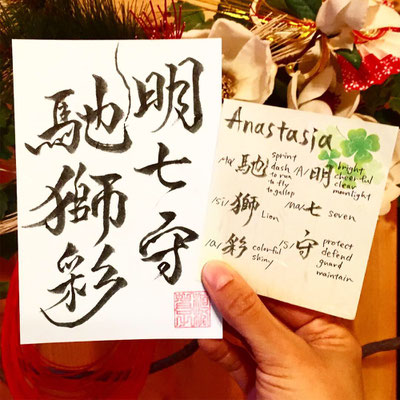 明七守
馳獅彩
Anastasia
/A/ 明 bright
cheerful
clear
moonlight
/na/ 七 seven
/s/ 守 protect
defend
guard
maintain
/ta/ 馳 sprint
dash
to run
to fly
to gallop
/si/ 獅 Lion
/a/ 彩 colorful
shiny